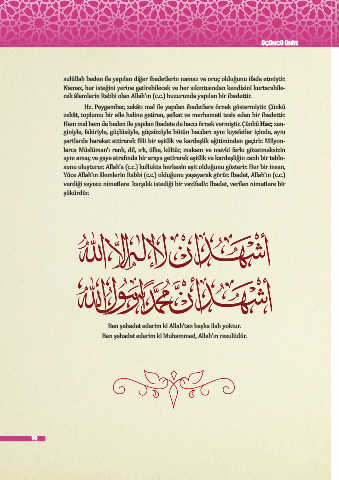 ÜÇÜNCÜ ÜNİTE
sulüllah beden ile yapılan diğer ibadetlerin namaz ve oruç olduğunu ifade etmiştir.
Namaz, her isteğini yerine getirebilecek ve her sıkıntısından kendisini kurtarabile-
cek âlemlerin Rabbi olan Allah'ın (c.c.) huzurunda yapılan bir ibadettir.
Hz. Peygamber, zekâtı mal ile yapılan ibadetlere örnek göstermiştir. Çünkü
zekât, toplumu bir aile haline getiren, şefkat ve merhameti tesis eden bir ibadettir.
Hem mal hem de beden ile yapılan ibadete de haccı örnek vermiştir. Çünkü Hac; zen-
giniyle, fakiriyle, güçlüsüyle, güçsüzüyle bütün hacıları aynı kıyafetler içinde, aynı
şartlarda hareket ettirerek fiili bir eşitlik ve kardeşlik eğitiminden geçirir. Milyon-
larca Müslüman'ı renk, dil, ırk, ülke, kültür, makam ve mevki farkı gözetmeksizin
aynı amaç ve gaye etrafında bir araya getirerek eşitlik ve kardeşliğin canlı bir tablo-
sunu oluşturur. Allah'a (c.c.) kullukta herkesin eşit olduğunu gösterir. Her bir insan,
Yüce Allah'ın âlemlerin Rabbi (c.c.) olduğunu yaşayarak görür. İbadet, Allah'ın (c.c.)
verdiği sayısız nimetlere karşılık istediği bir vazifedir. İbadet, verilen nimetlere bir
şükürdür.
أشهد أن لا إله إلا الله
أشهد أن محمدا رسول الله
Ben şehadet ederim ki Allah'tan başka ilah yoktur.
Ben şehadet ederim ki Muhammed, Allah'ın resulüdür.